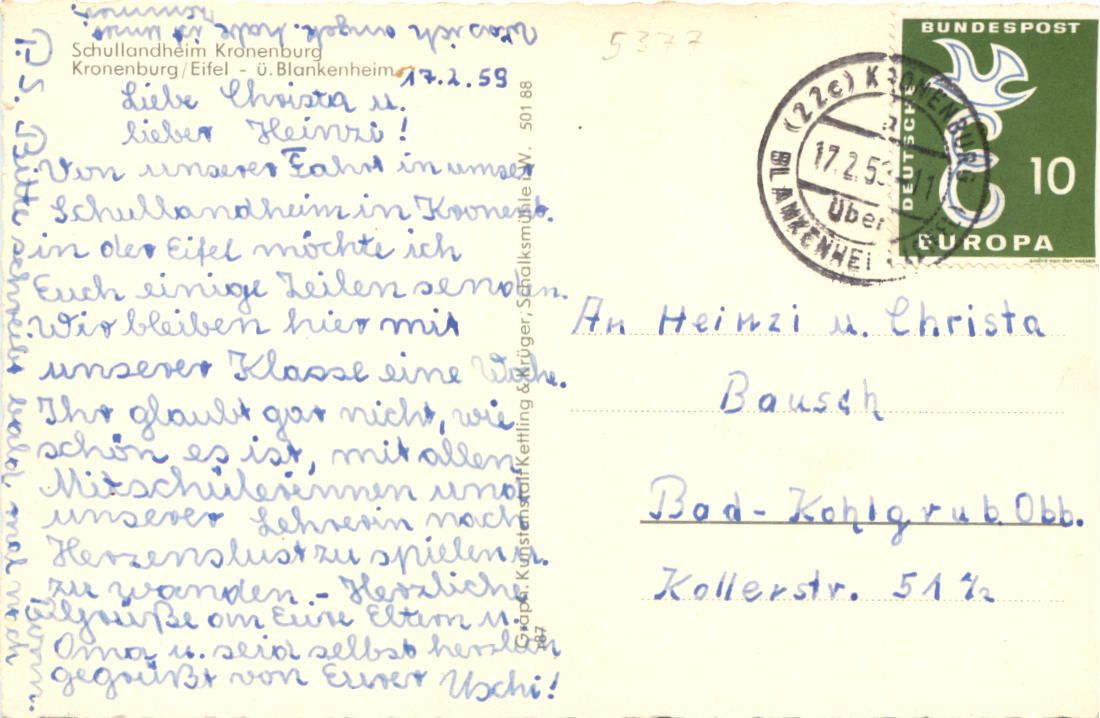 Schullandheim Kronenburg
Kronenburg/Eifel - ü. Blankenheim
17.2.59
Liebe Christa u.
lieber Heinzi!
Von unserer Fahrt in unser
Schullandheim in Kronenb.
in der Eifel möchte ich
Euch einige Zeilen senden.
Wir bleiben hier mit
unserer Klasse eine Woche.
Ihr glaubt gar nicht, wie
schön es ist, mit allen
Mitschülerinnen und
unserer Lehrerin nach
Herzenslust zu spielen u.
zu wandern. - Herzliche
Grüße an Eure Eltern u.
Oma u. seid selbst herzlich
gegrüßt von Eurer Uschi!
P.S. Bitte schreibt bald mal nach
Was ich
Graph. Kunstanstalt Kettling & Krüger, Schalksmühle i. W. 501 88
187
5377
BUNDESPOST
DEUTSCHE
10
EUROPA
(22c) KRONENBURG
17.2.59-11
über
BLANKENHEIM (EIFEL)
An Heinzi u. Christa
Bausch
Bad-Kohlgrub Obb.
Kollerstr. 51 1/2